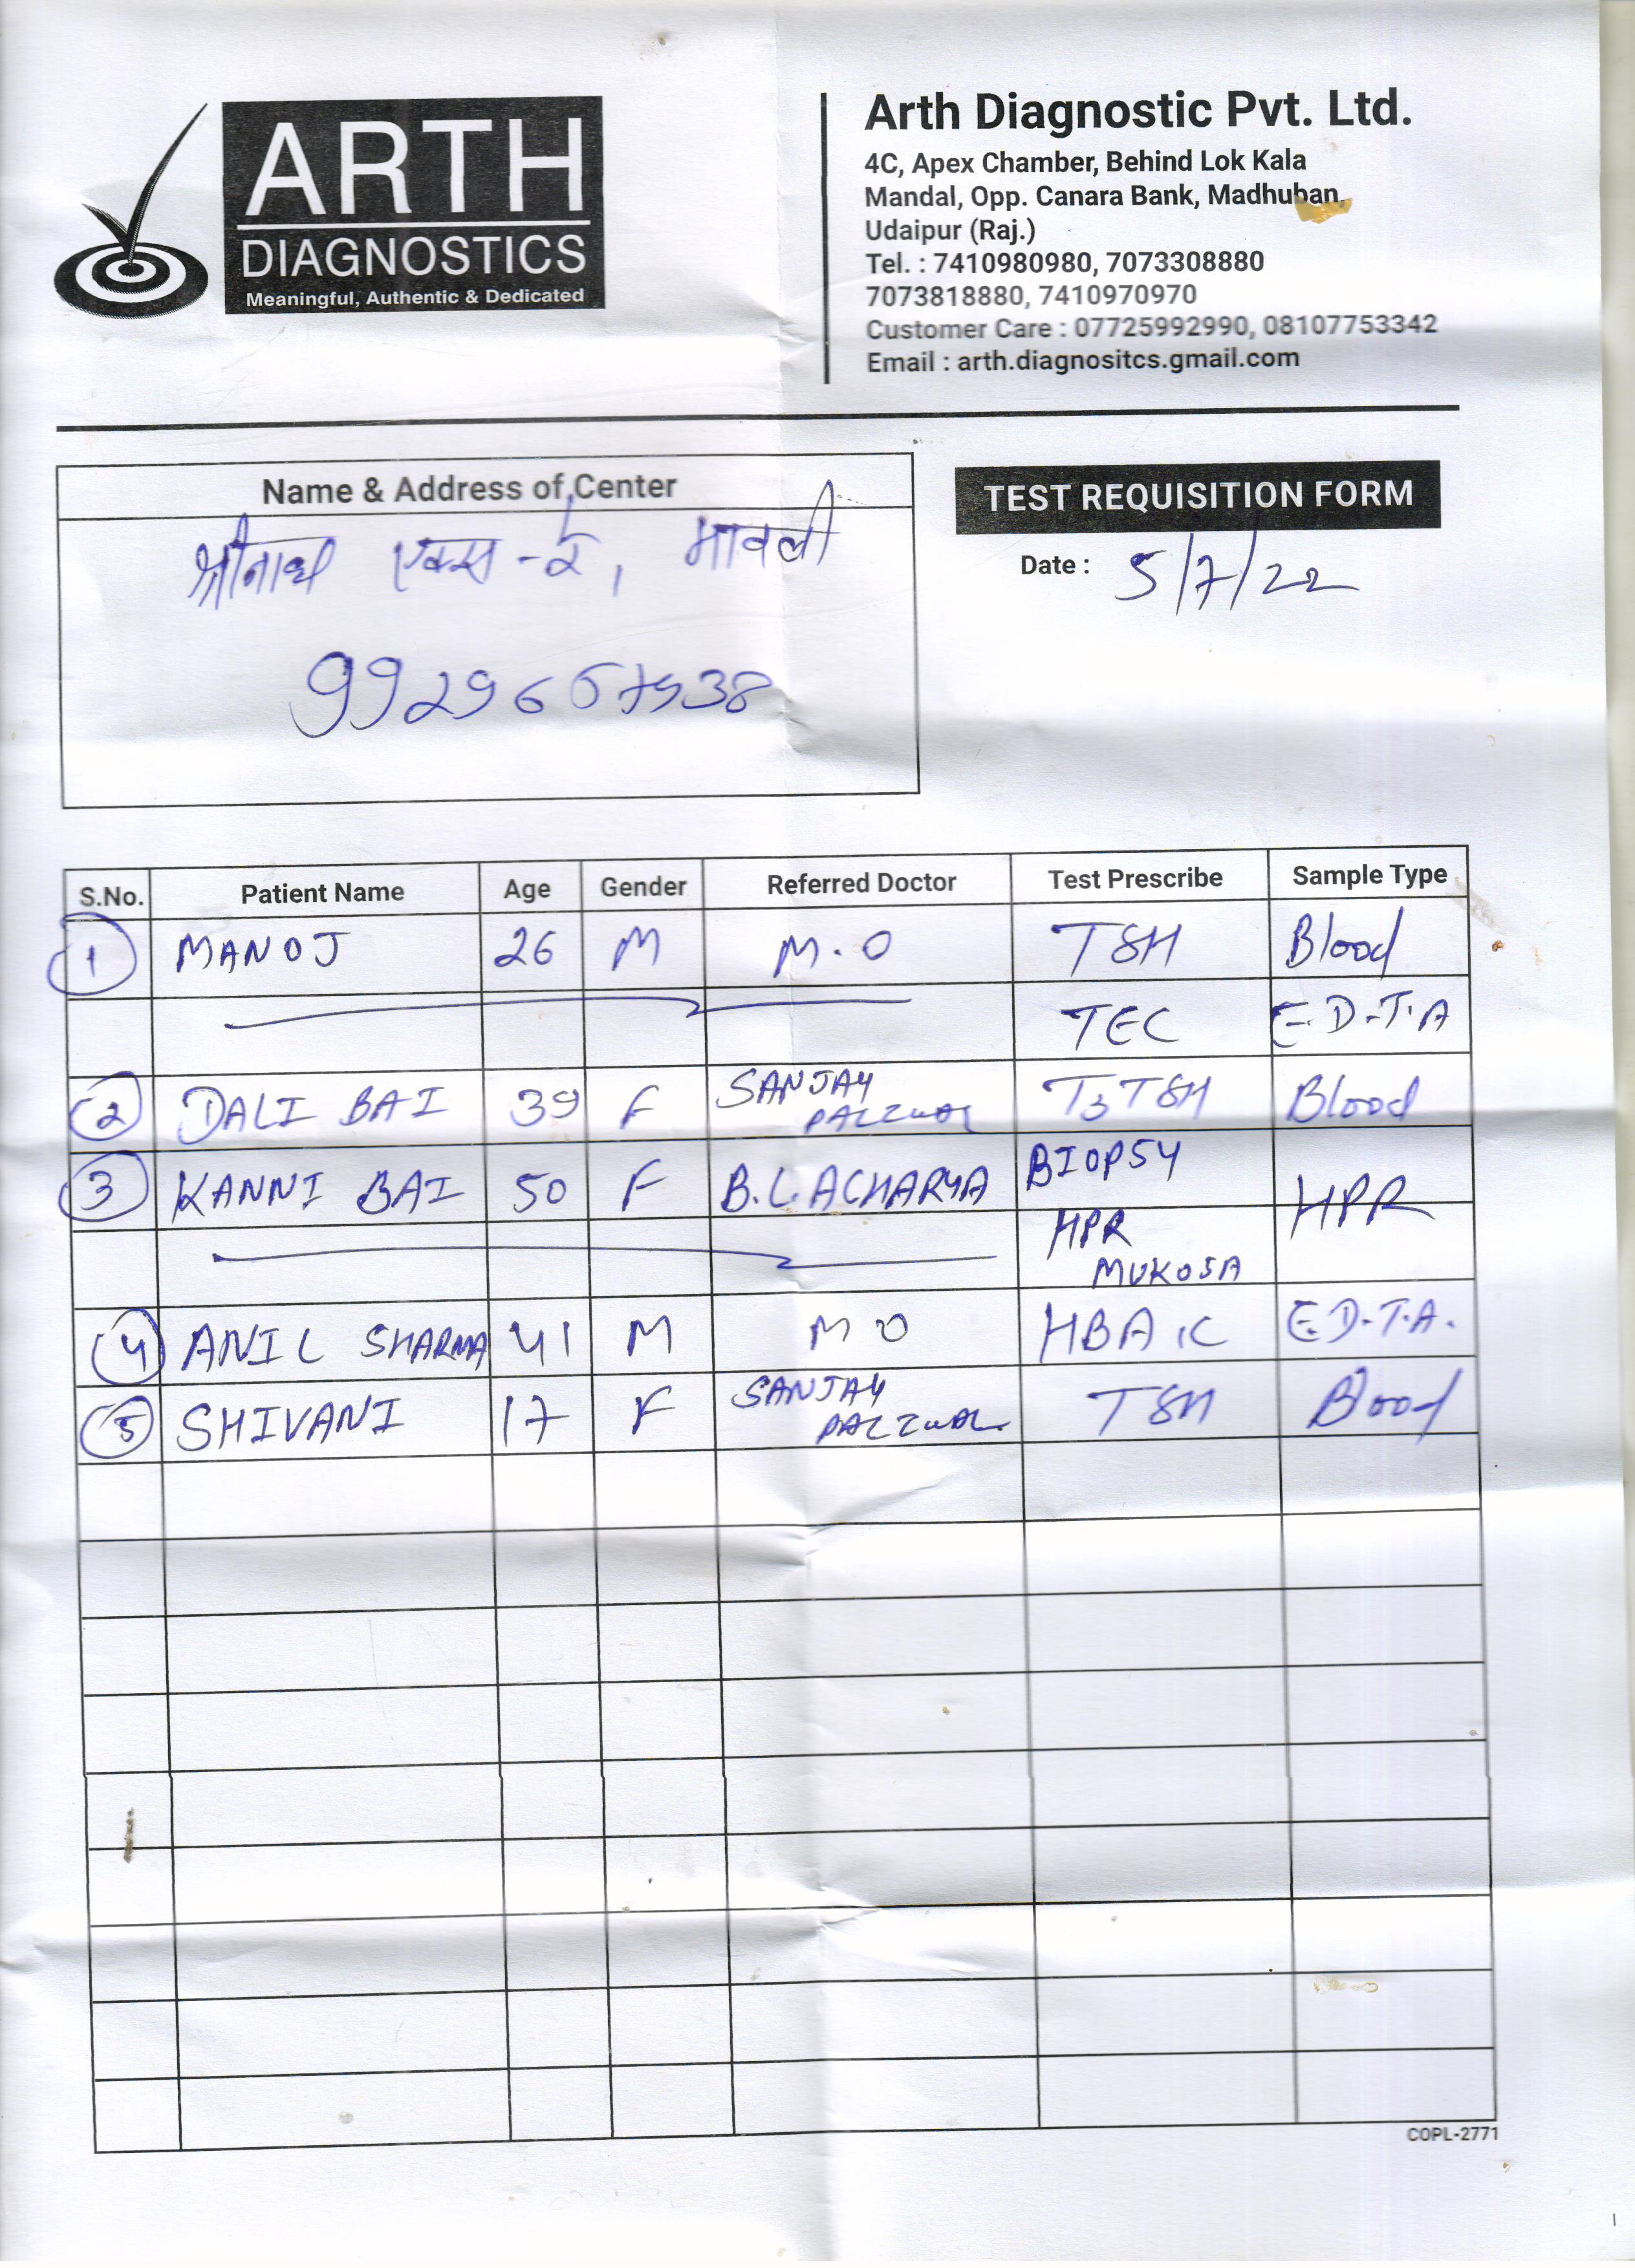 ARTH
DIAGNOSTICS
Meaningful, Authentic & Dedicated
Arth Diagnostic Pvt. Ltd.
4C, Apex Chamber, Behind Lok Kala
Mandal, Opp. Canara Bank, Madhuban,
Udaipur (Raj.)
Tel. : 7410980980, 7073308880
7073818880, 7410970970
Customer Care : 07725992990, 08107753342
Email : arth.diagnositcs.gmail.com
Name & Address of Center
श्रीनाथ एक्स-रे, मावली
TEST REQUISITION FORM
Date : 5/7/22
S.No. Patient Name Age Gender Referred Doctor Test Prescribe Sample Type
1 MANOJ 26 M M.O TSH Blood
TEC E.D.T.A
2 DALI BAI 39 F SANJAY T3 TSH Blood
3 KANNI BAI 50 F B.L. ACHARYA BIOPSY HPR
HPR
MUKOSA
4 ANIL SHARMA 41 M M O HBA1C E.D.T.A.
5 SHIVANI 17 F SANJAY TSH Blood
COPL-2771